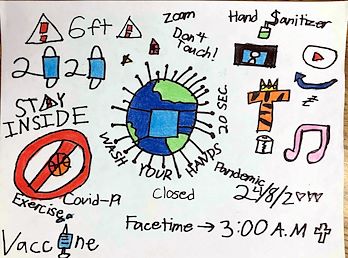 6ft
Zoom
Don't
Touch!
Hand $anitizer
2 2
STAY
INSIDE
20 SEC
WASH YOUR HANDS
Pandemic
24/8/2
Exercise
Covid-19
Closed
Facetime → 3:00 A.M
Vaccine